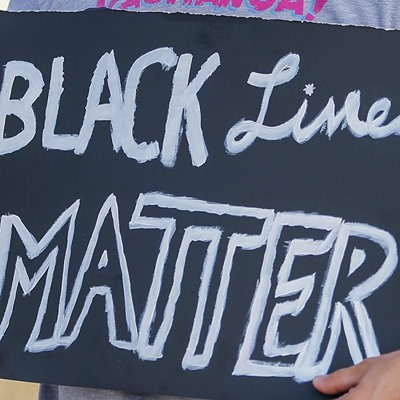 BLACK Lives
MATTER